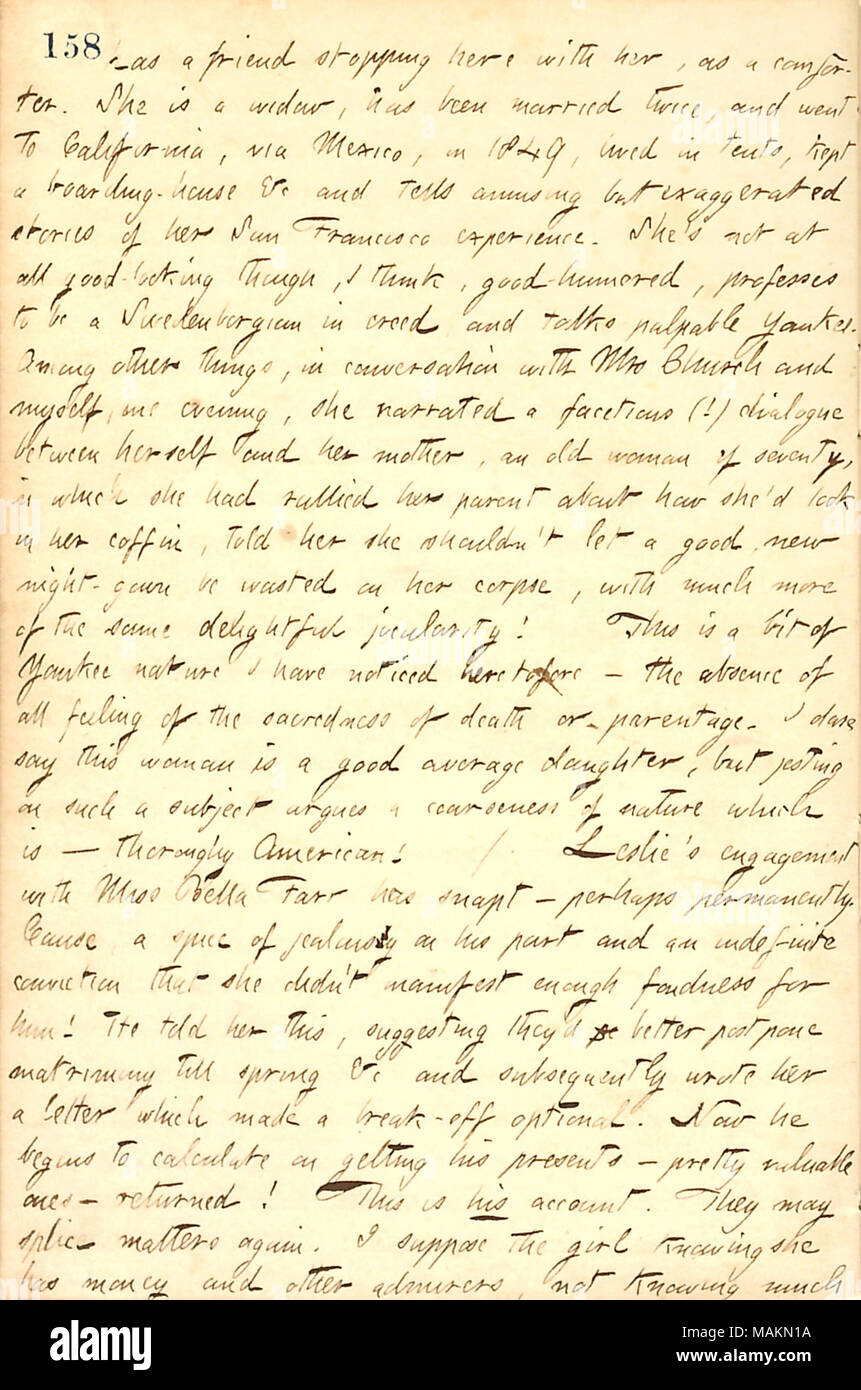 158
has a friend stopping here with her, as a comfor-
ter. She is a widow, has been married twice, and went
to California, via Mexico, in 1849, lived in tents, kept
a boarding-house &c and tells amusing but exaggerated
stories of her San Francisco experience. She's not at
all good-looking though, I think, good-humored, professes
to be a Swedenborgian in creed and talks palpable Yankee.
Among other things, in conversation with Mrs Church and
myself, one evening, she narrated a facetious (!) dialogue
between herself and her mother, an old woman of seventy,
in which she had rallied her parent about how she'd look
in her coffin, told her she shouldn't let a good new
night-gown be wasted on her corpse, with much more
of the same delightful jocularity! This is a bit of
Yankee nature I have noticed heretofore — the absence of
all feeling of the sacredness of death or parentage. I dare
say this woman is a good average daughter, but jesting
on such a subject argues a coarseness of nature which
is — thoroughly American! / Leslie's engagement
with Miss Bella Farr has snapt — perhaps permanently.
Cause a spice of jealousy on his part and an indefinite
conviction that she didn't manifest enough fondness for
him! He told her this, suggesting they'd better postpone
matrimony till spring &c and subsequently wrote her
a letter which made a break-off optional. Now he
begins to calculate on getting his presents — pretty valuable
ones — returned! This is his account. They may
splice matters again. I suppose the girl knowing she
has money and other admirers, not knowing much
alamy
Image ID: MAKN1A
www.alamy.com